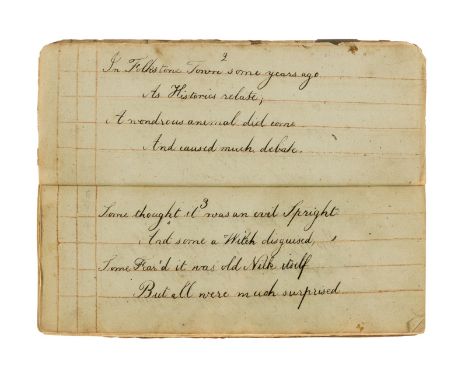 2
In Folkstone Town some years ago
As Histories relate,
A wondrous animal did come
And caused much debate.
3
Some thought it was an evil Spright
And some a Witch disguised,
Some Fear'd it was old Nick itself
But all were much surprised